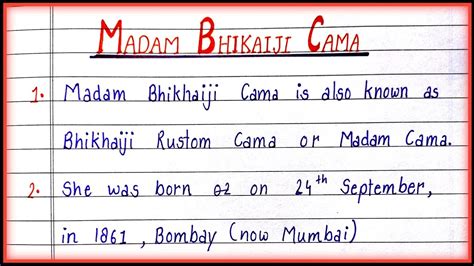 MADAM BHIKAIJI CAMA
1. Madam Bhikhaiji Cama is also known as
Bhikhaiji Rustom Cama or Madam Cama.
2. She was born on 24th September,
in 1861, Bombay (now Mumbai)